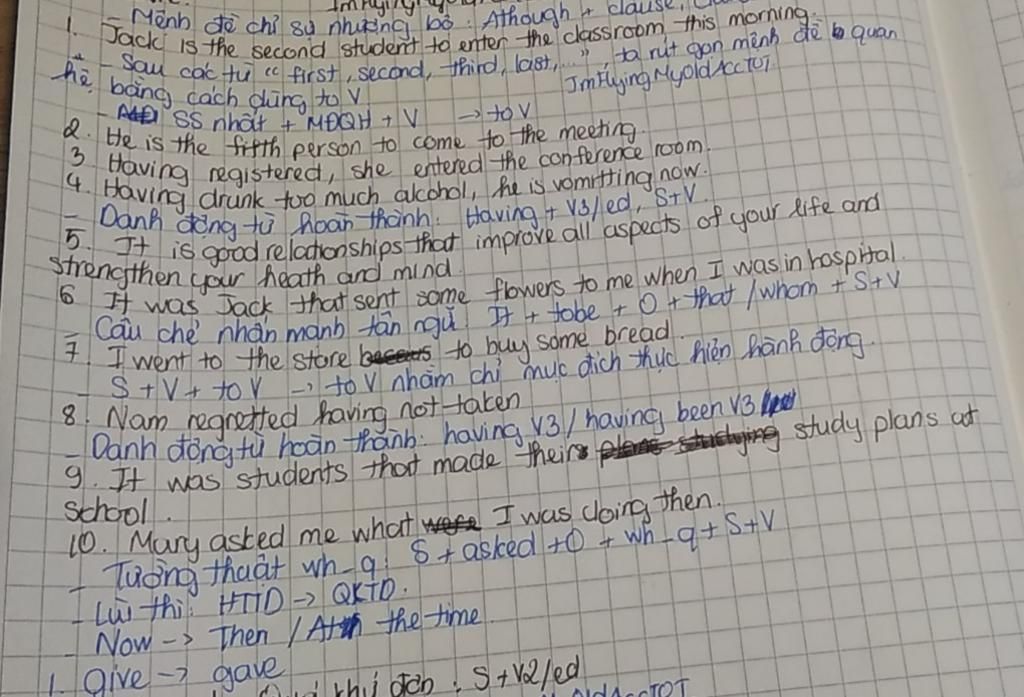 - Mệnh đề chỉ sự nhượng bộ: Athough + clause,
1. Jack is the second student to enter the classroom this morning.
- Sau các từ "first, second, third, last,...", ta rút gọn mệnh đề quan
hệ bằng cách dùng to V
JmFlyingMyOldAccTOT
- SS nhất + MĐQH + V → to V
2. He is the fifth person to come to the meeting.
3 Having registered, she entered the conference room.
4. Having drunk too much alcohol, he is vomitting now.
- Danh động từ hoàn thành: Having + V3/ed, S+V.
5. It is good relationships that improve all aspects of your life and
strengthen your heath and mind.
6 It was Jack that sent some flowers to me when I was in hospital.
- Câu chẻ nhấn mạnh tân ngữ: It + tobe + O + that / whom + S+V
7. I went to the store to buy some bread.
- S + V + to V → to V nhằm chỉ mục đích thực hiện hành động.
8. Nam regretted having not taken
- Danh động từ hoàn thành: having V3 / having been V3
9. It was students that made their study plans at
school.
10. Mary asked me what I was doing then.
- Tường thuật wh_q: S + asked + O + wh_q + S+V
- Lùi thì: HTTD → QKTD.
- Now → Then / At the time.
1. give → gave
đơn: S+V2/ed